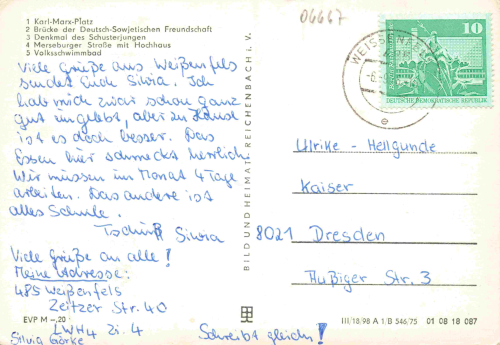 1 Karl-Marx-Platz
2 Brücke der Deutsch-Sowjetischen Freundschaft
3 Denkmal des Schusterjungen
4 Merseburger Straße mit Hochhaus
5 Volksschwimmbad
06667
WEISSENFELS
10
DEUTSCHE DEMOKRATISCHE REPUBLIK
Viele Grüße aus Weißenfels
sendet Euch Silvia. Ich
hab mich zwar schon ganz
gut eingelebt, aber zu Hause
ist es doch besser. Das
Essen hier schmeckt herrlich.
Wir müssen im Monat 4 Tage
arbeiten. Das andere ist
alles Schule.
Tschüß Silvia
Viele Grüße an alle!
Meine Adresse:
485 Weißenfels
Zeitzer Str. 40
LWH 4 Zi. 4
Silvia Görke
Schreibt gleich!
BILD UND HEIMAT REICHENBACH i. V.
Ulrike - Hellgunde
Kaiser
8021 Dresden
Außiger Str. 3
EVP M -,20
III/18/98 A 1 B 546/75 01 08 18 087